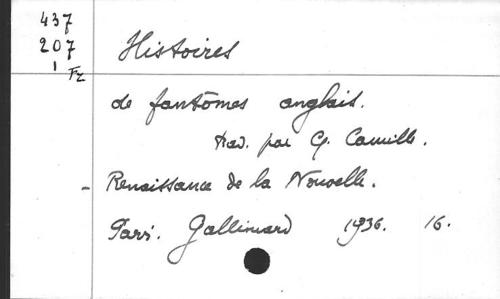 437
207
1 Fz
Histoires
de fantômes anglais.
trad. par G. Camille.
- Renaissance de la Nouvelle.
Paris. Gallimard 1936. 16.